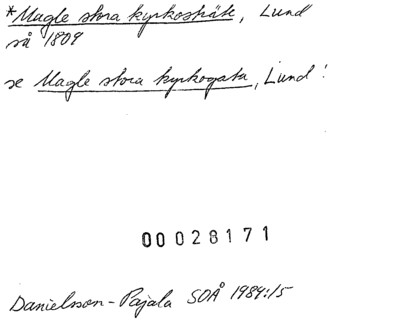 *Magle stora kyrkosträte, Lund
så 1809
se Magle stora kyrkogata, Lund!
00028171
Danielsson-Pajala SOÅ 1984:15